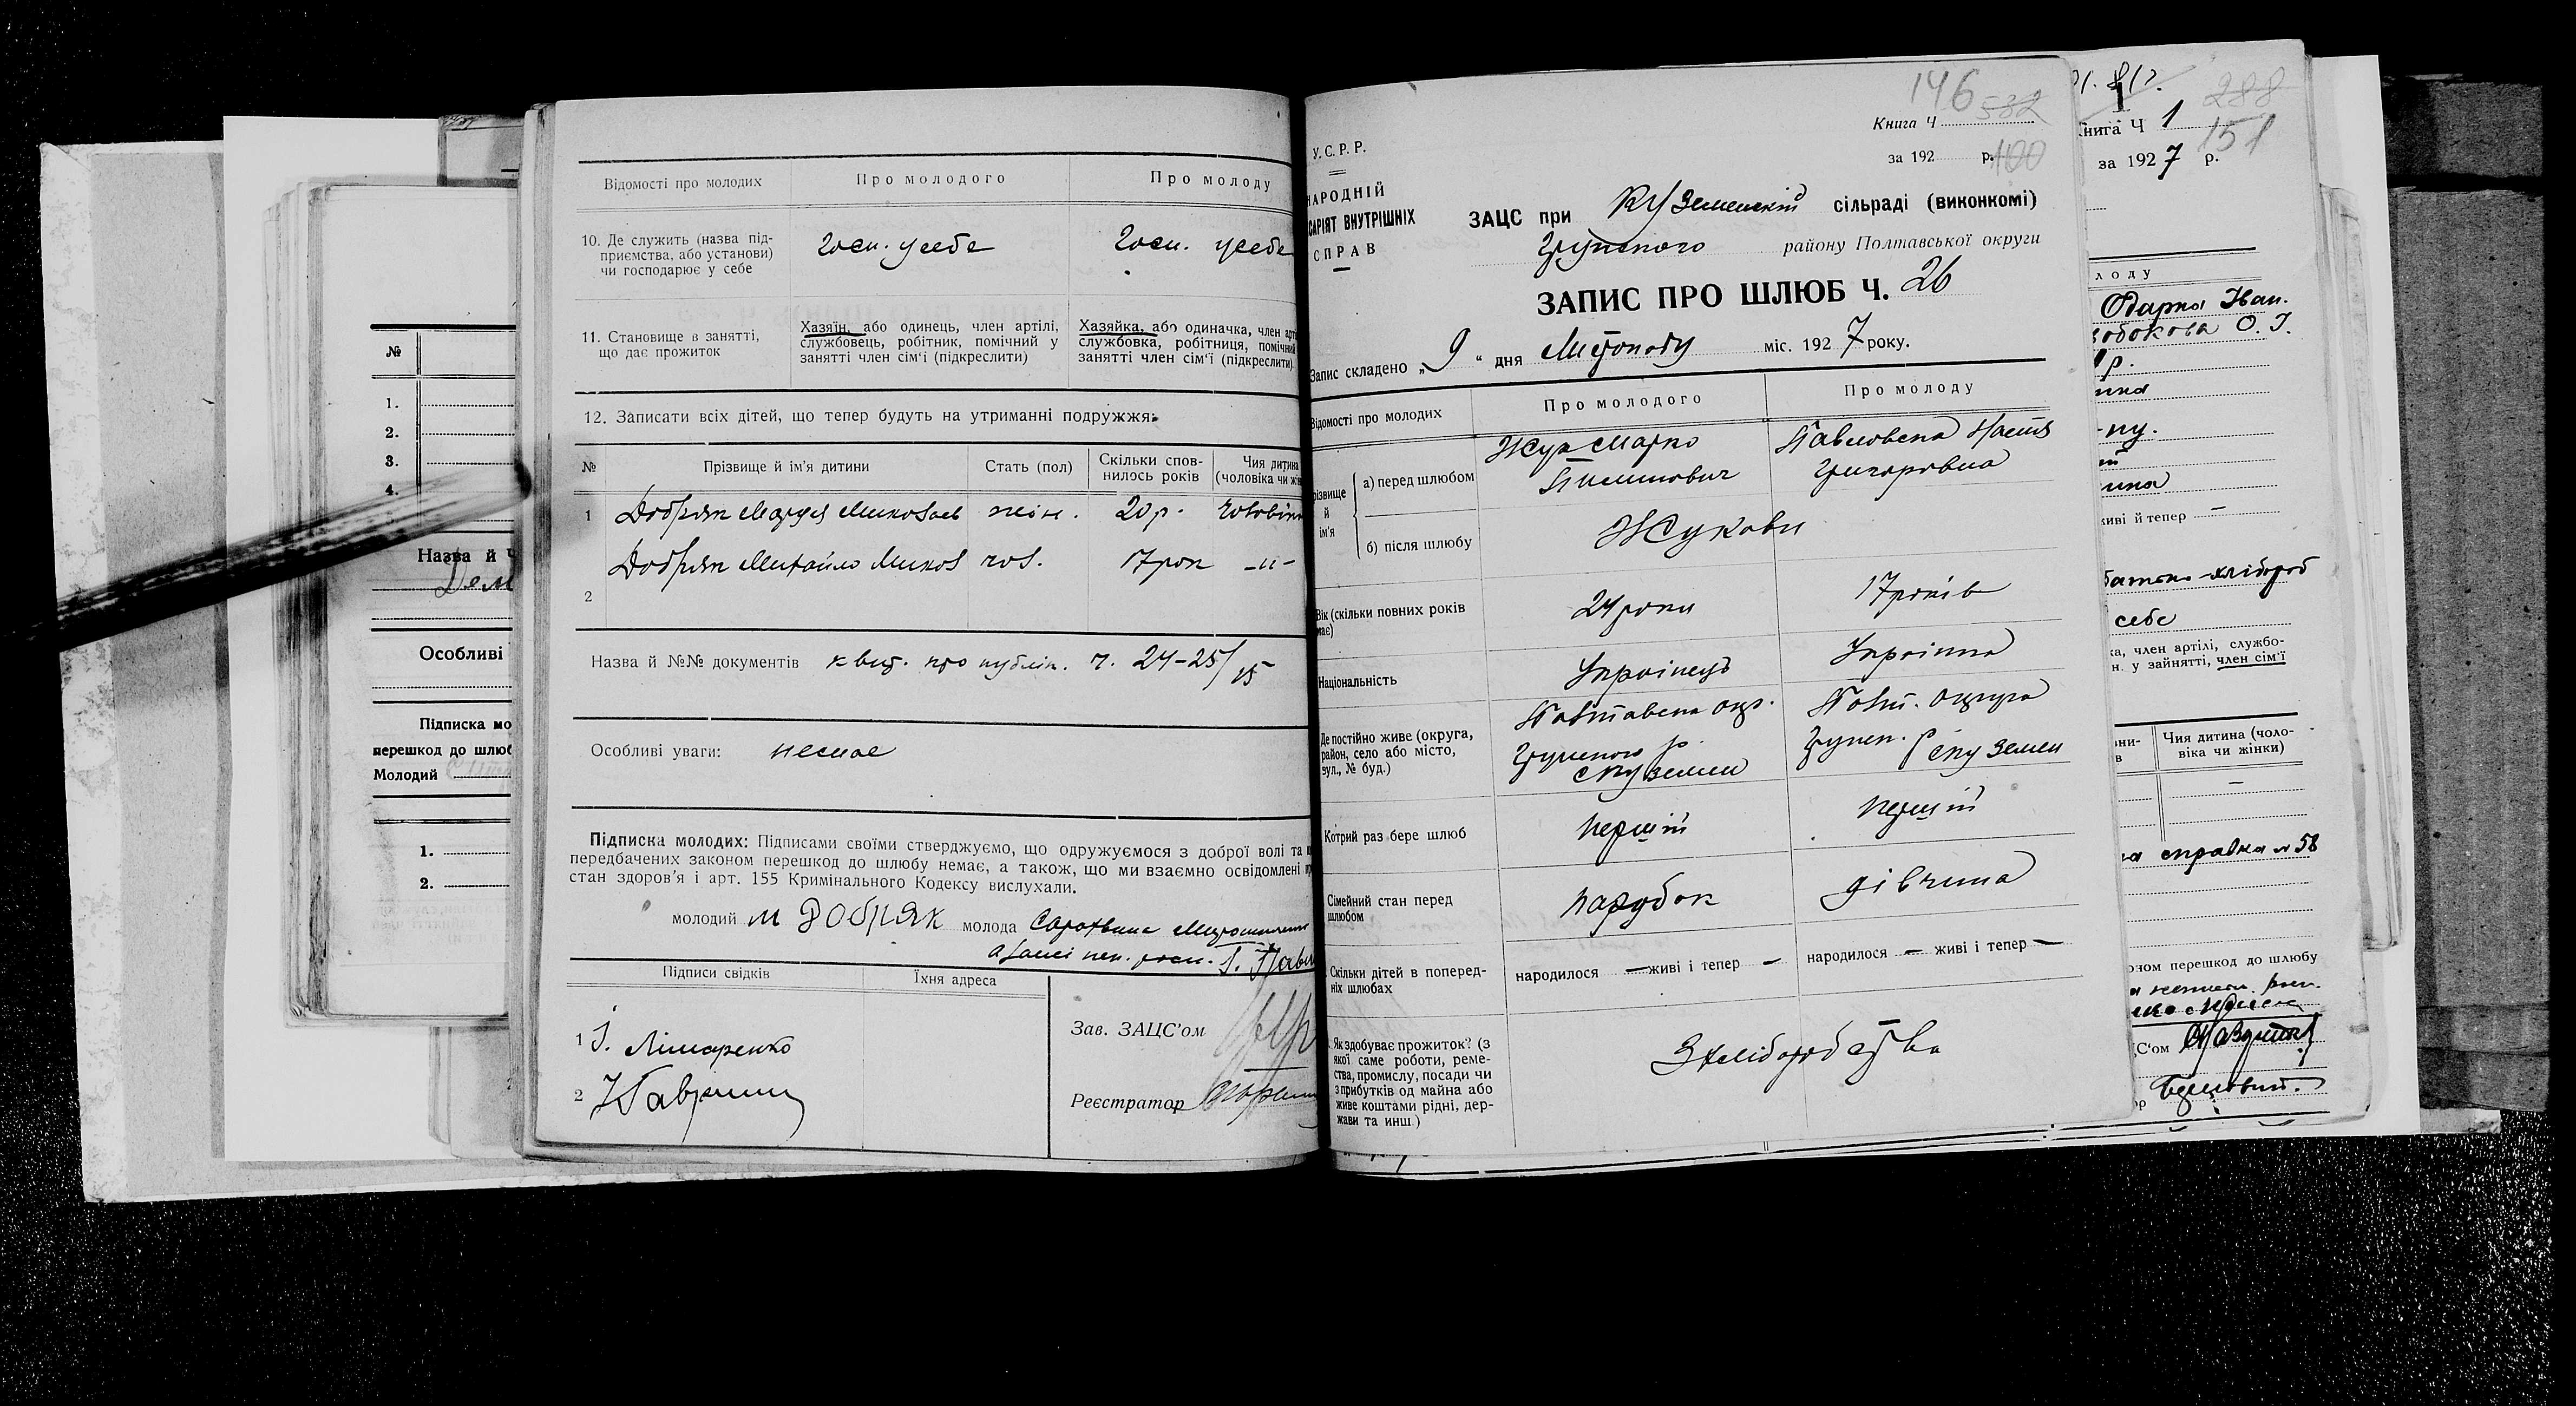 Відомості про молодих
Про молодого
Про молоду
10. Де служить (назва під-
приємства, або установи)
чи господарює у себе
Госп. у себе
Госп. у себе
11. Становище в занятті,
що дає прожиток
Хазяїн, або одинець, член артілі,
службовець, робітник, помічний у
занятті член сім'ї (підкреслити)
Хазяйка, або одиначка, член арті
службовка, робітниця, помічний
занятті член сім'ї (підкреслити)
12. Записати всіх дітей, що тепер будуть на утриманні подружжя:
№
Прізвище й ім'я дитини
Стать (пол)
Скільки спов-
нилось років
Чия дитина
(чоловіка чи жін
1 Добряк Марія Миколаев жін. 20 р. Чоловіка
2 Добряк Михайло Микол чол. 17 рок -"-
Назва й №№ документів квит. про публік. ч. 24-25/15
Особливі уваги: немає
Підписка молодих: Підписами своїми стверджуємо, що одружуємося з доброї волі та
передбачених законом перешкод до шлюбу немає, а також, що ми взаємно освідомлені
стан здоров'я і арт. 155 Кримінального Кодексу вислухали.
молодий М Добряк молода
Підписи свідків
Їхня адреса
1
2
Зав. ЗАЦС'ом
Реєстратор
№
1.
2.
3.
4.
Назва й
Особливі
Підписка мо
перешкод до шлюб
Молодий
1.
2.
146 532
Книга Ч
за 192 р. 100
У.С.Р.Р.
НАРОДНІЙ
САРІЯТ ВНУТРІШНІХ
СПРАВ
ЗАЦС при Куземенскій сільраді (виконкомі)
Грунського району Полтавської округи
ЗАПИС ПРО ШЛЮБ Ч. 26
Запис складено „9“ дня Листопаду міс. 1927 року.
Відомості про молодих
Про молодого
Про молоду
різвище
й
ім'я
а) перед шлюбом
Жук Марко
Пилипович
Павловська Настя
Григоровна
б) після шлюбу
Жукови
Вік (скільки повних років
має)
24 роки
17 років
Національність
Українець
Українка
Де постійно живе (округа,
район, село або місто,
вул., № буд.)
Полтавська окр.
Грунського р.
с Куземен
Полт. округа
Грунск. р с Куземен
Котрий раз бере шлюб
перший
перший
Сімейний стан перед
шлюбом
парубок
дівчина
Скільки дітей в поперед-
ніх шлюбах
народилося — живі і тепер —
народилося — живі і тепер —
Як здобуває прожиток? (з
якої саме роботи, реме-
ства, промислу, посади чи
з прибутків од майна або
живе коштами рідні, дер-
жави та инш.)
З хліборобства
288
нига Ч 1 151
за 1927 р.
лоду
Одарка Іван.
О. І.
живі й тепер —
батько хлібороб
себе
ка, член артілі, службо-
н. у зайнятті, член сім'ї
Чия дитина (чоло-
віка чи жінки)
справка № 58
ном перешкод до шлюбу
С'ом